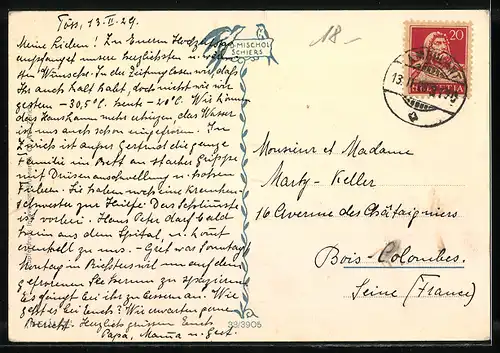 Töss, 13. II. 29.
Meine Lieben! Zu Eurem Hochzeitstag
empfanget unsere herzlichsten u.
Wünsche. In der Zeitung lesen wir, dass
Ihr auch kalt habt, doch nicht wie wir
gestern -30,5° heute -20°C. Wir können
das Haus kaum mehr das Wasser
ist uns auch schon eingefroren. In
Zürich ist ausser Gertrud die ganze
Familie im Bett an starker Grippe
mit Drüsenanschwellung u. hohem
Fieber. Sie haben noch eine Kranken-
schwester zur Hilfe. Das Schlimmste
ist vorbei. Hans Peter darf bald
heim aus dem Spital, u. kommt
eventuell zu uns. - Gret war Sonntag u.
Montag in Richterswil um auf dem
gefrorenen See herum zu spazieren.
Es fängt bei ihr zu
geht es bei Euch? Wir erwarten gerne
Bericht. Herzlich grüssen Euch
Papa, Mama u. Gret.
D. MISCHOL
SCHIERS
33/3905
18 -
20
HELVETIA
13. II.
Monsieur et Madame
Marty-Keller
16 Avenue des Châtaigniers
Bois-Colombes.
Seine (France)